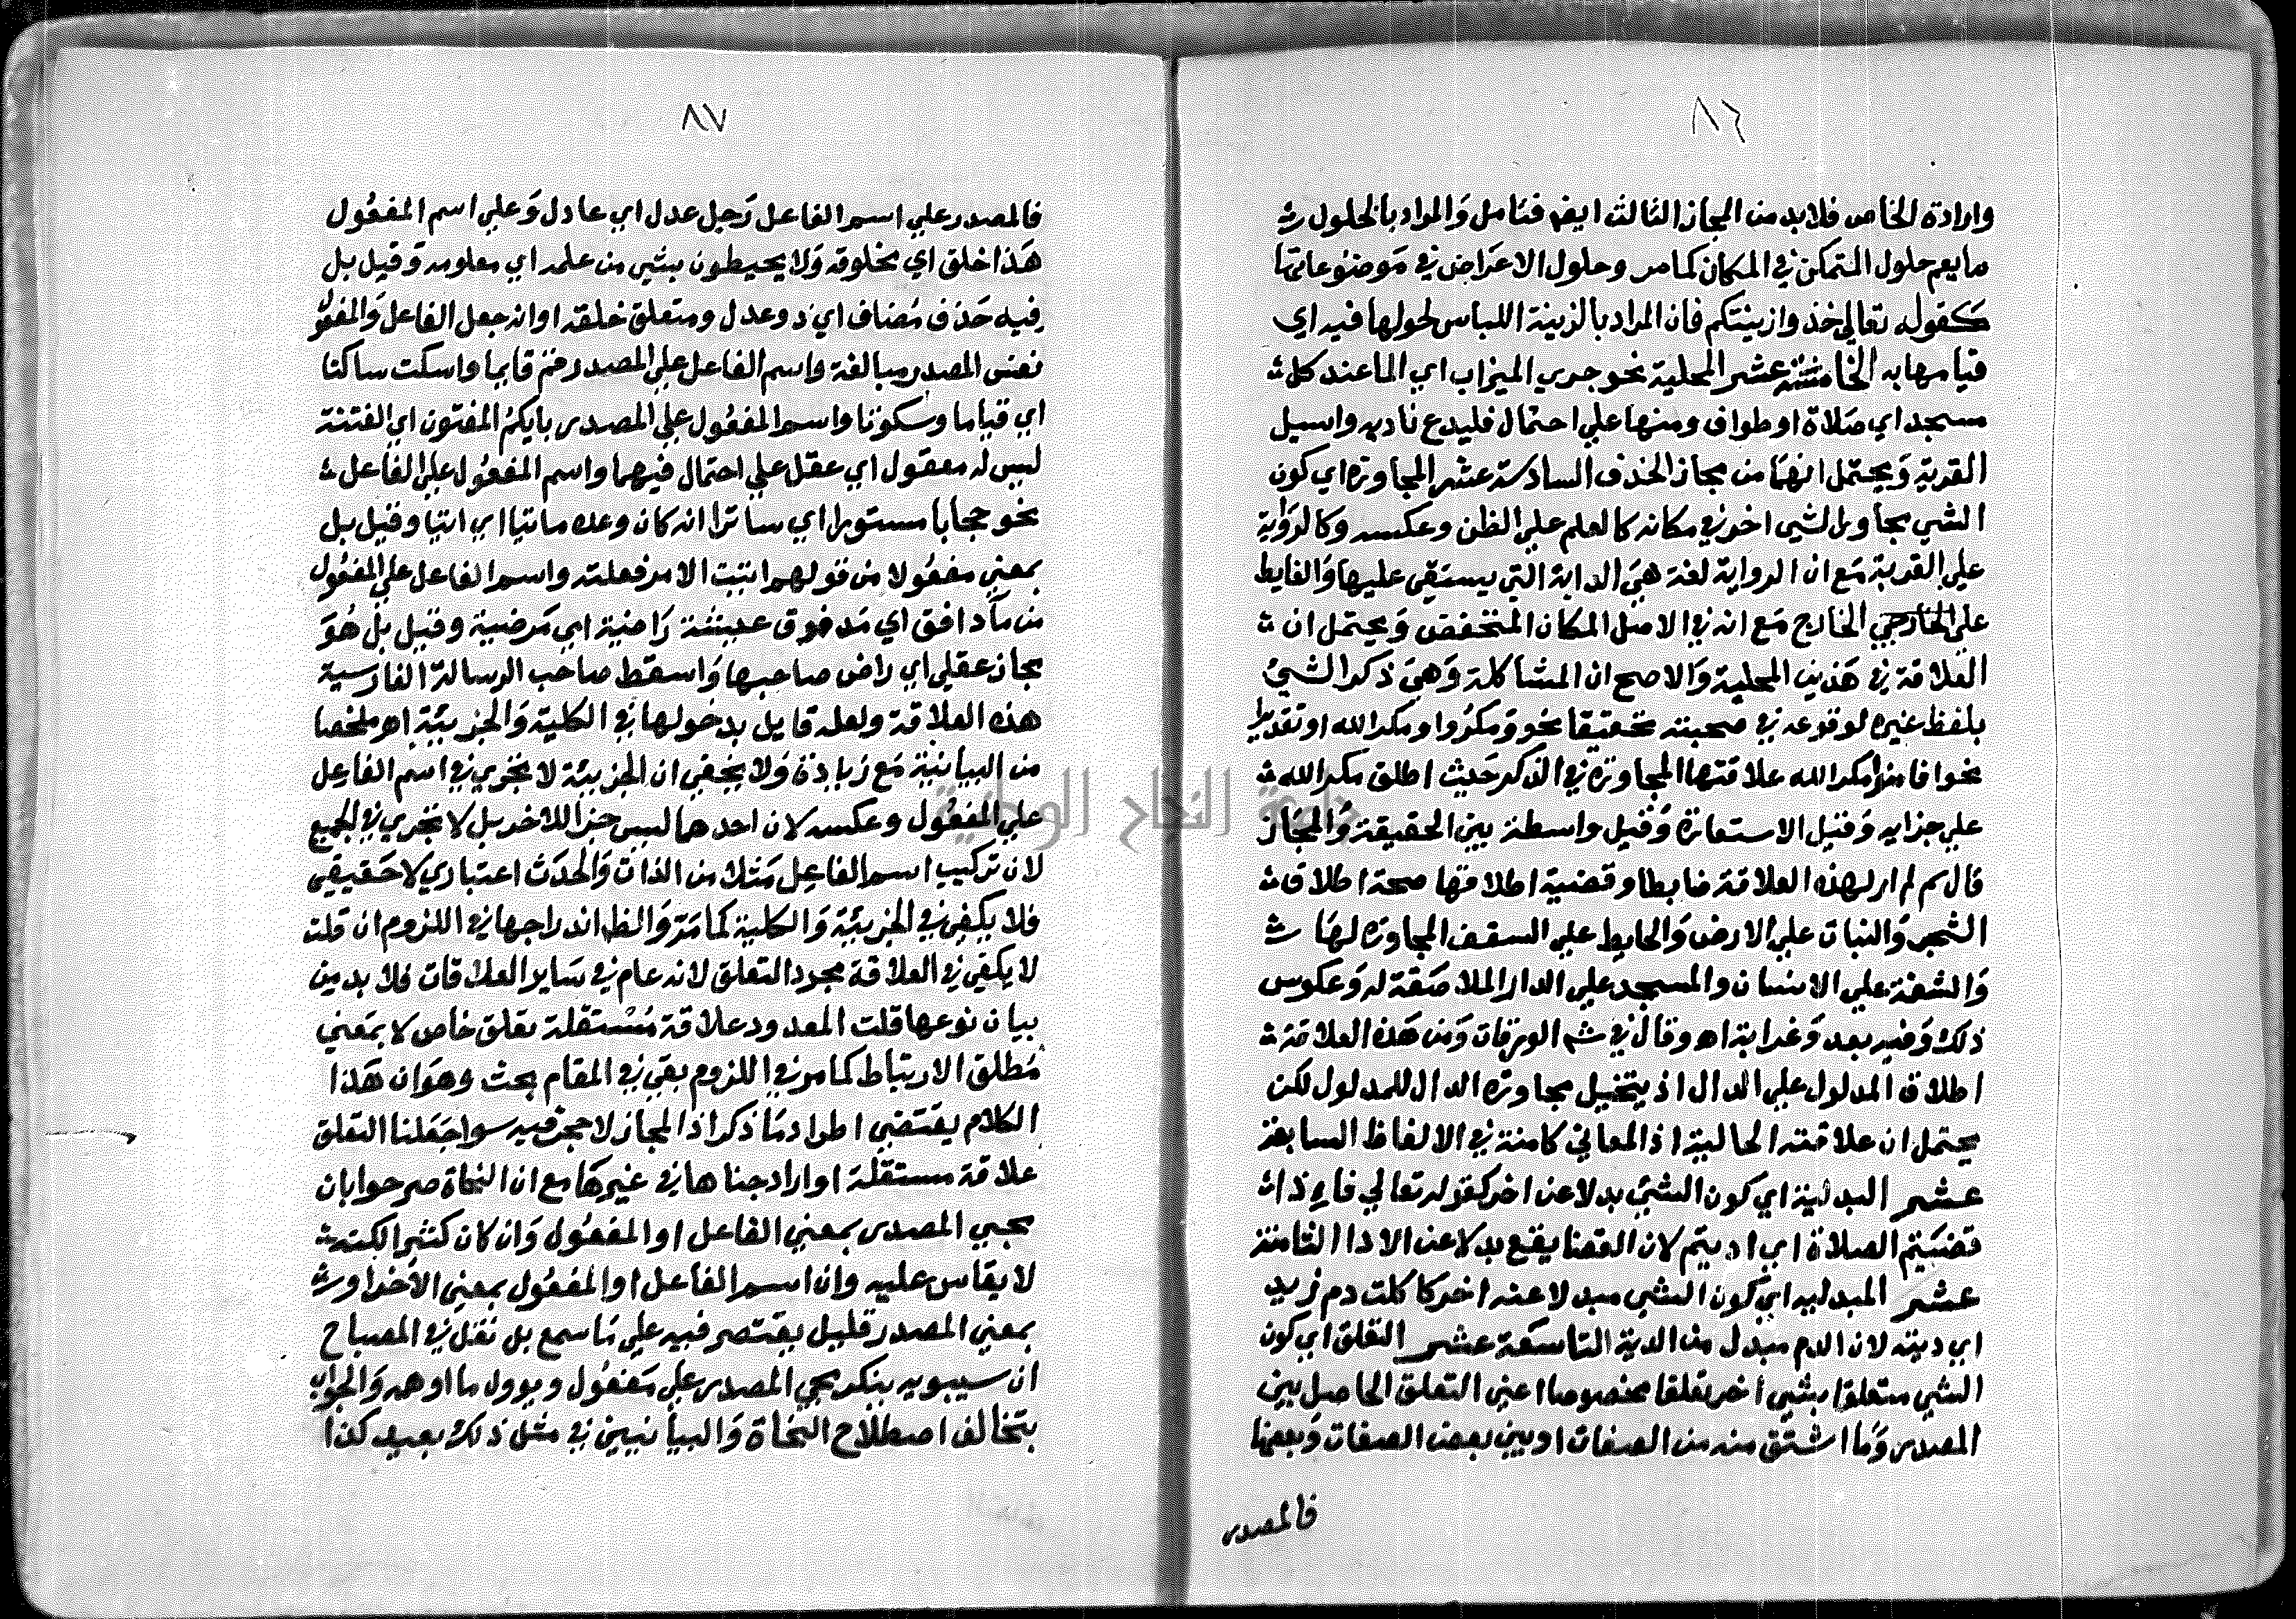 ٨٦
وارادة الخاص فلابد من المجاز الثالث ايض فتامل وَالمراد بالحلول
ما يعم حلول المتمكن في المكان كما مر وحلول الاعَراض في مَوضوعاتها
كقوله تعالي خذوا زينتكم فان المراد بالزينة اللباس لحولها فيه اي
قيامها به الخامسة عشر المحلية نحو جري الميزاب اي الما عند كل
مسجد اي صَلاة او طواف ومنها علي احتمال فليدع ناديه واسيل
القرية وَيحتمل انهمَا من مجاز الحذف السادسة عشر المجاورة اي كون
الشي مجاورا لشي اخر في مكانه كالعلم علي الظن وعكسه وكالروَاية
علي القربة مَع ان الرواية لغة هيَ الدابة التي يستقي عليها وَالغايط
علي الخارجي الخارج مَع انه في الاصل المكان المنخفض وَيحتمل ان
العلاقة في هَذين المحلية وَالاصح ان المشاكلة وَهيَ ذكر الشيُ
بلفظ غيره لوقوعه في صحبته تحقيقا نحو وَمكرُوا ومكر الله او تقديرا
نحو افامنوا مكر الله علاقتها المجاورَة في الذكر حَيث اطلق مكر الله
علي جزايه وَقيل الاستعارة وَقيل واسطة بين الحقيقة وَالمجَاز
قال سم لم ار لهذه العلاقة ضابطا وقضية اطلاقها صحة اطلاق
الشجر وَالنبات علي الارض وَالحايط علي السقف المجاورَه لهَا
وَالشفة علي الانسان والمسجد علي الدار الملاصَقة له وَعكوس
ذلك وَفيه بعد وَغرابة اه وقال في شم الورقات وَمن هَذه العلاقة
اطلاق المدلول علي الدال اذ يتخيل مجاورَة الدال للمدلول لكن
يحتمل ان علاقته الحالية اذ المعاني كامنة في الالفاظ السابعة
عشر البدلية اي كون الشيُ بدلا عن اخر كقوله تعالي فاذا
قضيَتم الصلاة اي اديتم لان القضا يقع بدلا عن الادا الثامنة
عشر المبدليه اي كون الشي مبدلا عنه اخر كاكلت دم زيد
اي ديته لان الدم مبدل من الدية التاسعَة عشر التعلق اي كون
الشي متعلقا بشي اخر تعلقا مخصوصا اعني التعلق الحاصل بين
المصدر وَما اشتق منه من الصفات او بين بعض الصفات وَبعضها
فالمصدر
٨٧
فالمصدر علي اسم الفاعل رَجل عدل اي عادل وَعلي اسم المفعُول
هَذا خلق اي مخلوقه وَلا يحيطون بشي من علمه اي معلومه وَقيل بل
فيه حَذف مُضاف اي ذو عدل ومتعلق خلقه او انه جعل الفاعل وَالمفعول
نفس المصدر مبالغة واسم الفاعل علي المصدر قم قايما واسكت ساكتا
اي قياما وسكوتا واسم المفعُول علي المصدر بايكم المفتون اي الفتنة
ليس له معقول اي عقل علي احتمال فيهما واسم المفعُول علي الفاعل
نحو حجابا مستورا اي ساترا انه كان وعده ماتيا اي اتيا وقيل بل
بمعني مفعُولا من قولهم اتيت الامر فعلته واسم الفاعل علي المفعُول
من مآ دافق اي مَدفوق عيشة رَاضية اي مَرضية وقيل بل هُوَ
مجاز عقلي اي راض صاحبها وَاسقط صاحب الرسالة الفارسية
هذه العلاقة ولعله قايل بدخولها في الكلية وَالجزئية اه ملخصا
من البيانية مَع زيادة وَلا يخفي ان الجزيئة لا تجري في اسم الفاعِل
علي المفعُول وعكسه لان احدهما ليس جزا للاخر بل لا تجري في الجميع
لان تركيب اسم الفاعِل مَثلا من الذات وَالحدَث اعتباري لا حَقيقي
فلا يكفي في الجزيئة وَالكلية كما مَرّ وَالظ اندراجها في اللزوم ان قلت
لا يكفي في العلاقة مجرد التعلق لانه عام في سَاير العلاقات فلا بد من
بيان نوعها قلت المعدود علاقة مُسْتقلة تعلق خاص لا بمَعني
مُطلق الارتباط كما مر في اللزوم بقي في المقام بحث وهوَ ان هَذا
الكلام يقتضي اطراد مَا ذكر اذ المجاز لا حجر فيه سوا جَعَلنا التعلق
علاقة مستقلة او ادرجناها في غيرهَا مع ان النحاة صرحوا بان
مجي المصدر بمعني الفاعل او المفعُول وَان كان كثيرا لكنه
لا يقاس عليه وان اسم الفاعل او المفعُول بمعني الاخر او
بمعني المصدر قليل يقتصر فيه علي مَا سمع بل نقل في المصباح
ان سيبويه ينكر مجي المصدر علي مَفعُول ويوول ما اوهمه وَالجواب
بتخالف اصطلاح النحَاة وَالبيانيين في مثل ذلك بعيد كذا